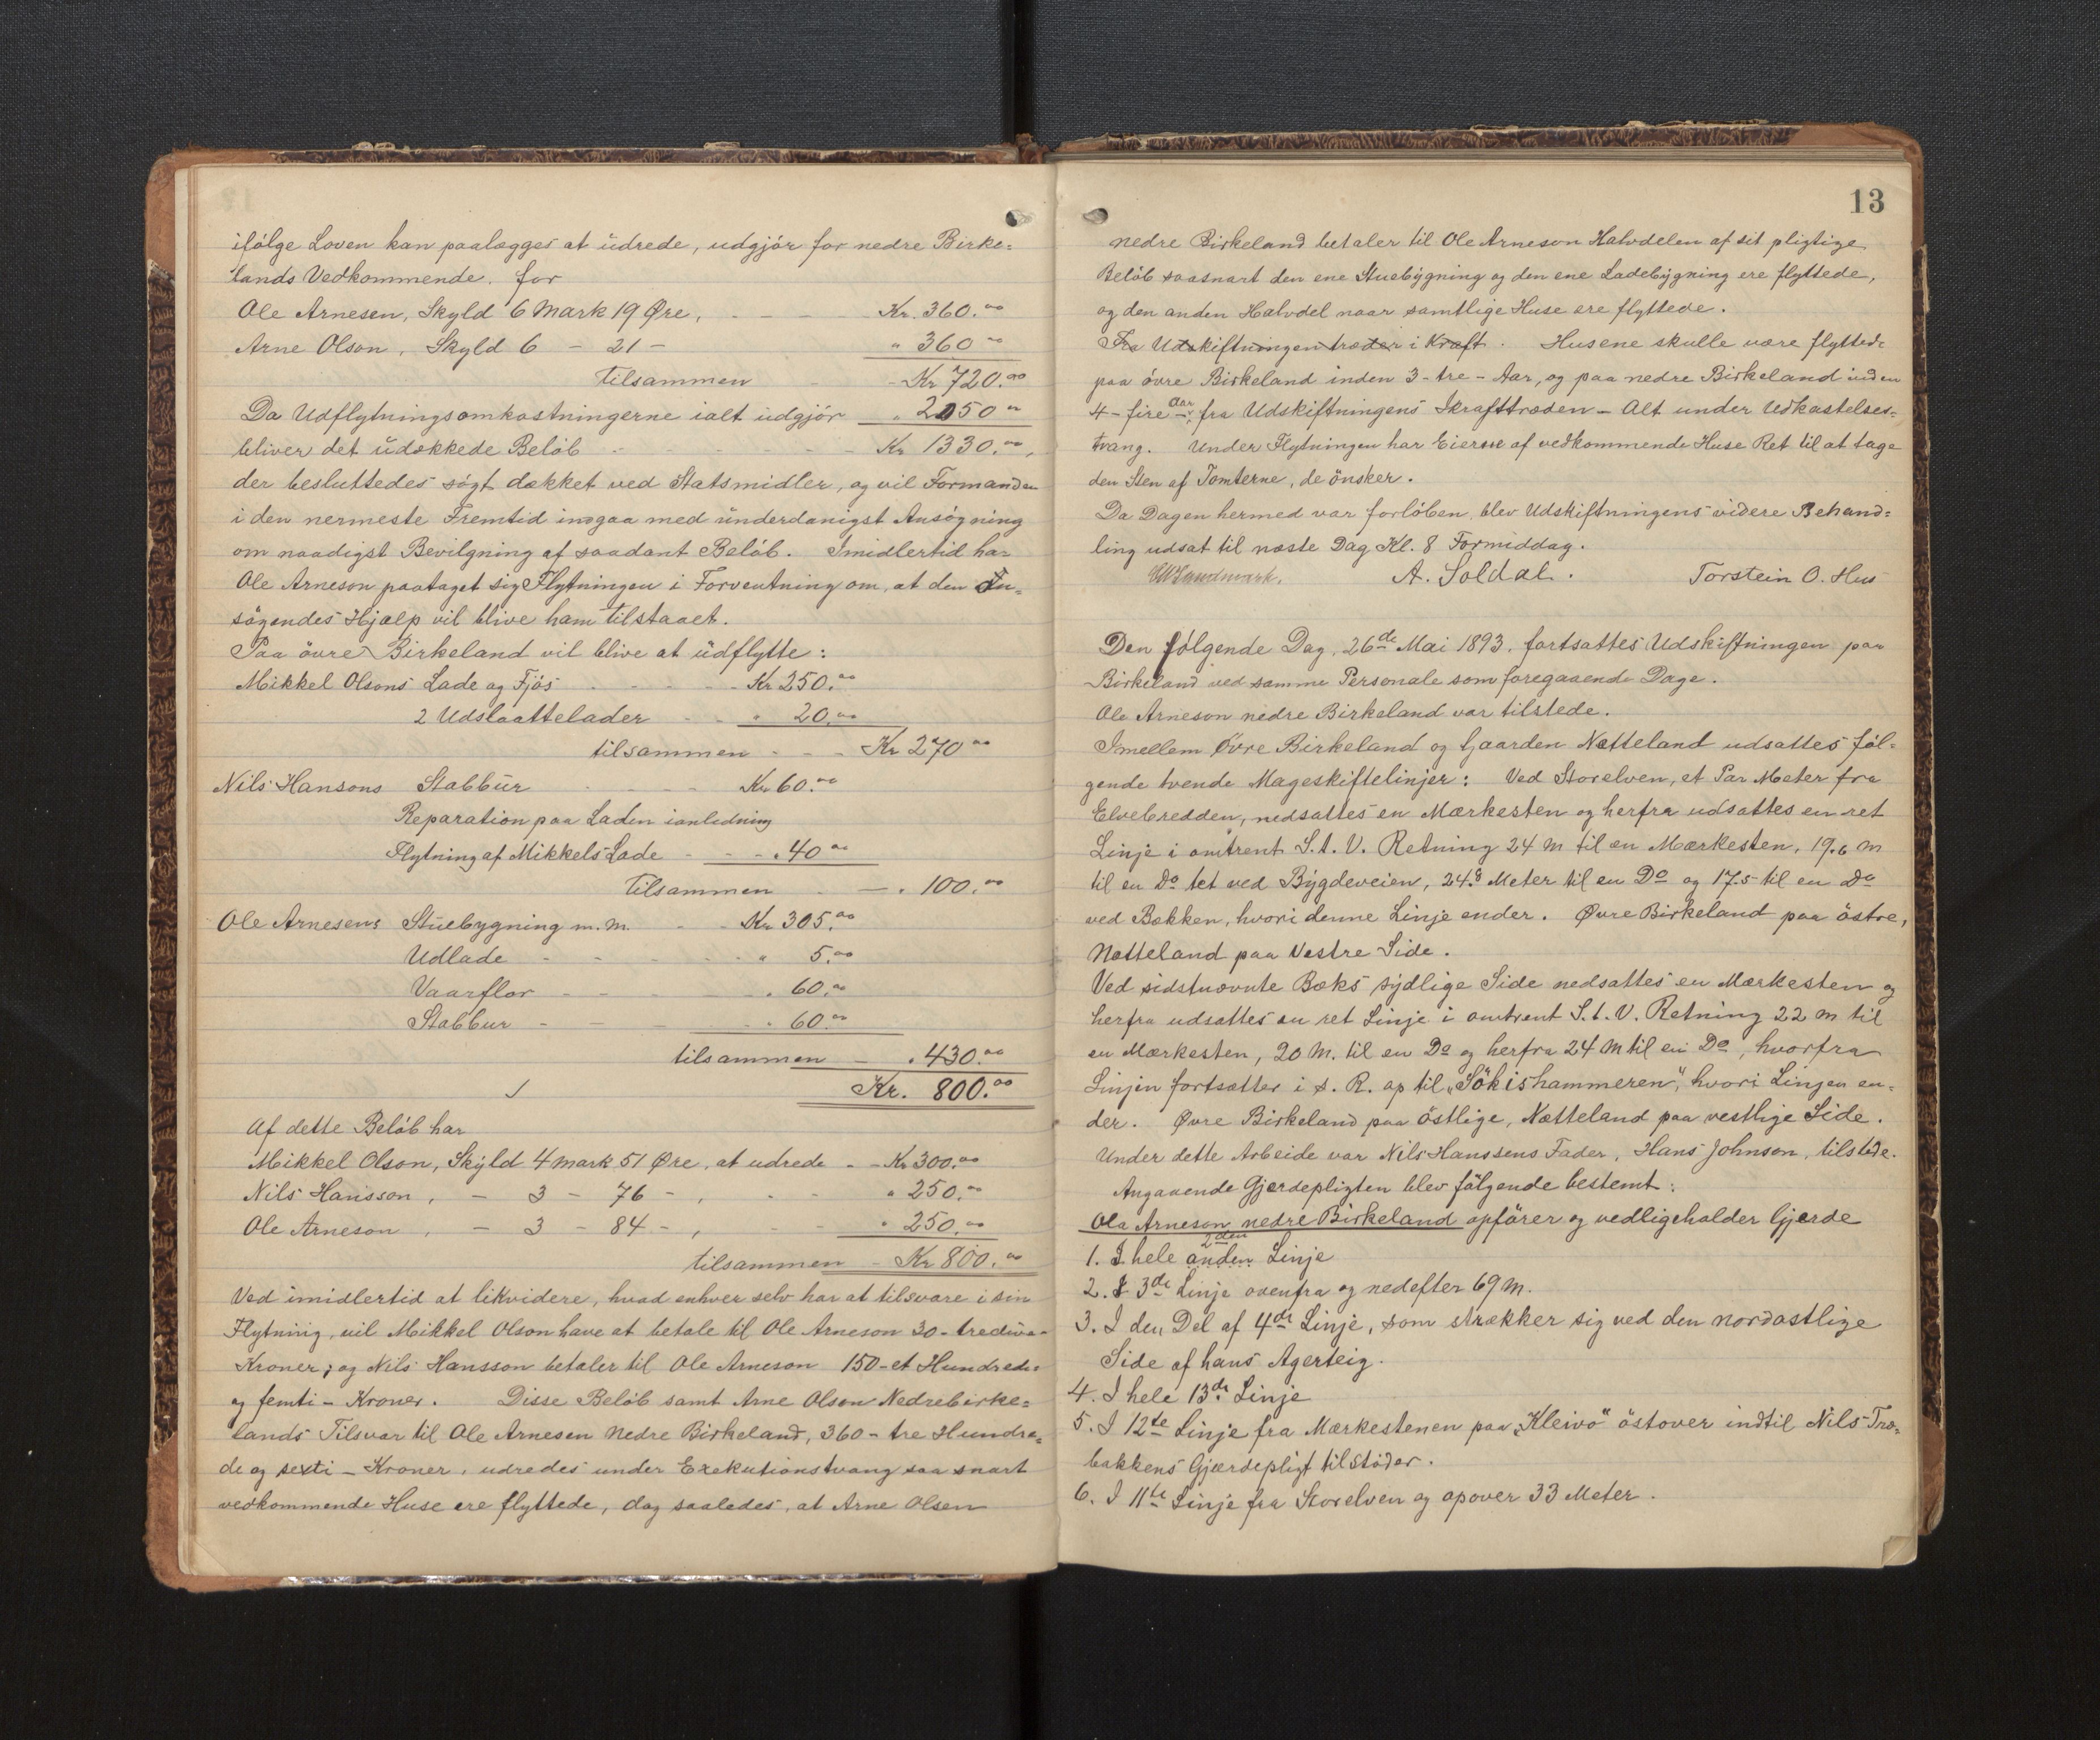 ifølge Loven kan paalægges at udrede, udgjør for nedre Birke=
lands Vedkommende for
Ole Arnesen, Skyld 6 Mark 19 Øre, - - - Kr. 360.00
Arne Olson, Skyld 6 - 21 - " 360 00
Tilsammen - Kr 720.00
Da Udflytningsomkostningerne ialt udgjør " 2050 00
bliver det udækkede Beløb - - - - Kr 1330.00,
der besluttedes søgt dækket ved Statsmidler, og vil Formanden
i den nermeste Fremtid indgaa med underdanigst Ansøgning
om naadigst Bevilgning af saadant Beløb. Imidlertid har
Ole Arneson paataget sig Flytningen i Forventning om, at den An=
søgendes Hjælp vil blive ham tilstaaet.
Paa øvre Birkeland vil blive at udflytte:
Mikkel Olsons Lade og Fjøs - - - Kr 250.00
2 Udslaattelader - - " 20.00
tilsammen - - - Kr 270 00
Nils Hansons Stabbur - - - Kr 60.00
Reparation paa Laden ianledning
Flytning af Mikkels Lade - - - " 40 00
Tilsammen - — " 100.00
Ole Arnesens Stuebygning m.m. - - Kr 305.00
Udlade - - - - " 5.00
Vaarflor - - - " 60.00
Stabbur - - - " 60.00
tilsammen — " 430.00
Kr. 800.00
Af dette Beløb har
Mikkel Olson, Skyld 4 Mark 51 Øre, at udrede - - Kr 300.00
Nils Hansson, - 3 - 76 - , - - " 250.00
Ole Arneson, - 3 - 84 - , - - " 250.00
tilsammen - Kr 800.00
Ved imidlertid at likvidere, hvad enhver selv har at tilsvare i sin
Flytning, vil Mikkel Olson have at betale til Ole Arneson 30 - trediva -
Kroner; og Nils Hansson betaler til Ole Arneson 150 - et Hundrede
og femti - Kroner. Disse Beløb samt Arne Olson Nedrebirke=
lands Tilsvar til Ole Arnesen Nedre Birkeland, 360 - tre Hundre=
de og sexti - Kroner, udredes under Exekutionstvang saa snart
vedkommende Huse ere flyttede, dog saaledes, at Arne Olsen
13
nedre Birkeland betaler til Ole Arneson Halvdelen af sit pligtige
Beløb saasnart den ene Stuebygning og den ene Ladebygning ere flyttede,
og den anden Halvdel naar samtlige Huse ere flyttede.
Fra Udskiftningen træder i Kraft. Husene skulle være flyttede
paa øvre Birkeland inden 3 - tre - Aar, og paa nedre Birkeland inden
4 - fire Aar - fra Udskiftningens Ikrafttræden - Alt under Udkastelses=
tvang. Under Flytningen har Eierne af vedkommende Huse Ret til at tage
den Sten af Tomterne, de ønsker.
Da Dagen hermed var forløben blev Udskiftningens videre Behand=
ling udsat til næste Dag Kl. 8 Formiddag.
Landmark. A. Soldal. Torstein O. Hus
Den følgende Dag, 26de Mai 1893, fortsattes Udskiftningen paa
Birkeland ved samme Personale som foregaaende Dage.
Ole Arneson nedre Birkeland var tilstede.
Imellem Øvre Birkeland og Gaarden Natteland udsattes føl=
gende tvende Mageskiftelinjer: Ved Storelven, et Par Meter fra
Elvebredden, nedsattes en Mærkesten og herfra udsattes en ret
Linje i omtrent S.t.V. Retning 24 m til en Mærkesten, 19.6 m
til en Do tet ved Bygdeveien, 24.8 Meter til en Do og 17.5 til en Do
ved Bækken, hvori denne Linje ender. Øvre Birkeland paa østre,
Natteland paa Vestre Side.
Ved sidstnævnte Bæks sydlige Side nedsattes en Mærkesten og
herfra udsattes en ret Linje i omtrent S.t.V. Retning 22 m til
en Mærkesten, 20 M. til en Do og herfra 24 M til en Do, hvorfra
Linjen fortsætter i s. R. op til "Søkishammeren", hvori Linjen en=
der. Øvre Birkeland paa østlige, Nætteland paa vestlige Side.
Under dette Arbeide var Nils Hanssens Fader, Hans Johnson, tilstede.
Angaaende Gjerdepligten blev følgende bestemt:
Ola Arneson nedre Birkeland opfører og vedligeholder Gjerde
1. I hele anden 2den Linje
2. I 3de Linje ovenfra og nedefter 69 m.
3. I den Del af 4de Linje, som strækker sig ved den nordøstlige
Side af hans Agerteig.
4. I hele 13de Linje
5. I 12te Linje fra Mærkestenen paa "Kleivo" østover indtil Nils Træ=
bakkens Gjærdepligt tilstøder.
6. I 11te Linje fra Storelven og opover 33 Meter.